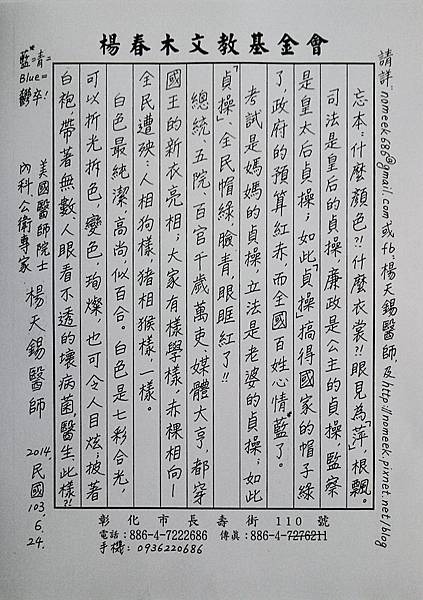 楊春木文教基金會
請詳：nomeek686@gmail.com或fb：楊天錫醫師，及http://nomeek.pixnet.net/blog
忘本，什麼顏色?!什麼衣裳?!眼見為「萍」，根飄。
司法是皇后的貞操，廉政是公主的貞操，監察
是皇太后貞操；如此「貞操」搞得國家的帽子綠
了，政府的預算紅赤，而全國百姓心情*藍了。
考試是媽媽的貞操，立法是老婆的貞操；如此
「貞操」，全民帽綠臉青，眼眶紅了!!
總統、五院、百官千歲萬吏，媒體大亨，都穿
國王的新衣亮相；大家有樣學樣，赤裸相向—
全民遭殃；人相狗樣，豬相猴樣，一樣。
白色最純潔，高尚似百合。白色是七彩合光，
可以折光拆色，變色，殉燦，也可令人目炫；披著
白袍，帶著無數人眼看不透的壞病菌，醫生，此樣?!
美國醫師院士
內科、公衛專家
楊天錫醫師
2014.民國103.6.24.
*藍=青=
Blue=
鬱卒!
彰化市長壽街110號
電話：886-4-7222686 傳真：886-4-7276211
手機：0936220686